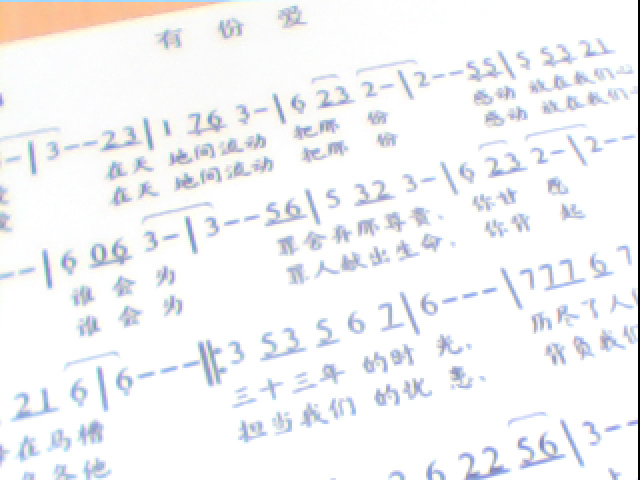 有份爱
-|3--23|1 76 3-|6 23 2-|2--55|5 53 21
在天地间流动 把那份 感动 放在我们心
在天地间流动 把那份 感动 放在我们
--|6 06 3-|3--56|5 32 3-|6 23 2-|2--
谁会为 罪会弃那尊贵, 你甘愿
谁会为 罪人献出生命, 你背起
21 6|6---‖:3 53 5 6 7|6---|7 77 6 7
在马槽 三十三年的时光, 历尽了人
担当我们的忧患, 背负我们
6 22 56|3--